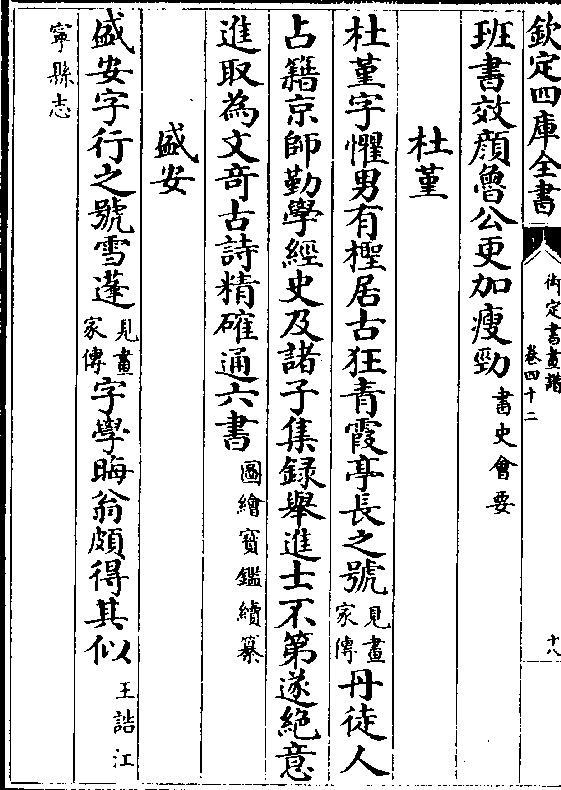 欽定四庫全書
御定書畫譜
卷四十二
十八
班書效顔魯公更加瘦勁書史會要
杜堇
杜堇字懼男有檉居古狂青霞亭長之號見畫家傳丹徒人
占籍京師勤學經史及諸子集録舉進士不第遂絶意
進取為文竒古詩精確通六書圖繪寳鑑續纂
盛安
盛安字行之號雪蓬見畫家傳字學晦翁頗得其似王誥江
寧縣志